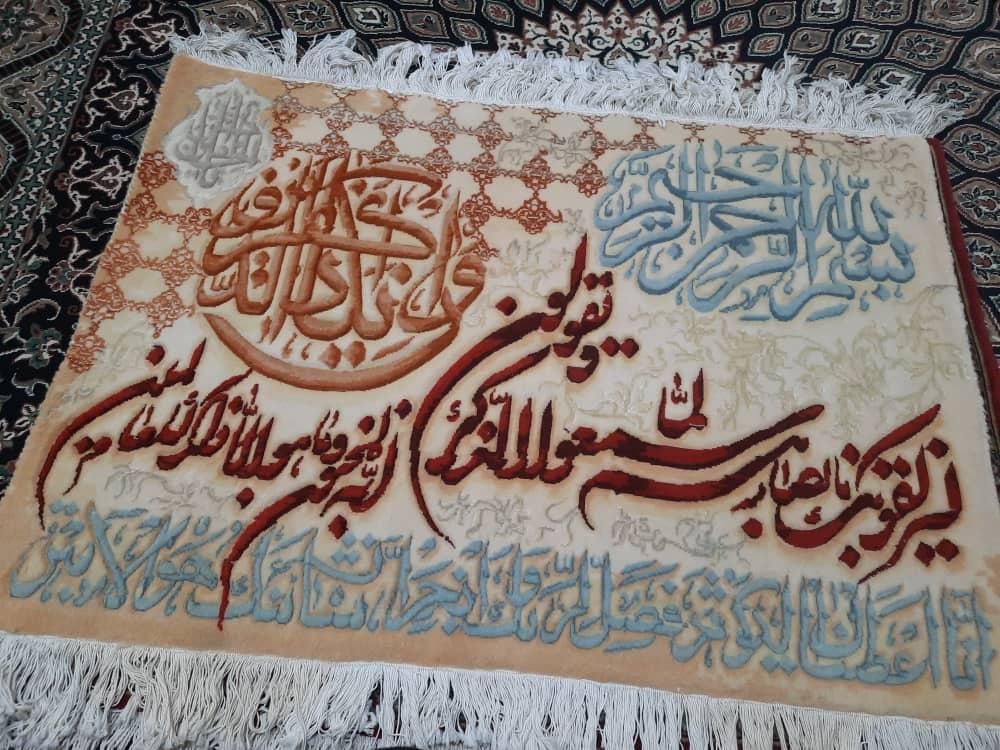 بسم الله الرحمن الرحيم
وإن يكاد الذين كفروا
ليزلقونك بأبصارهم لما سمعوا الذكر ويقولون إنه لمجنون وما هو إلا ذكر للعالمين
إنا أعطيناك الكوثر فصل لربك وانحر إن شانئك هو الأبتر